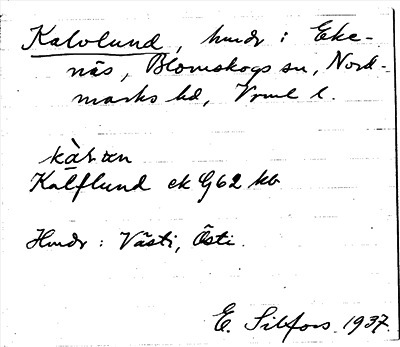 Kalvlund, hmdr: Eke-
näs, Blomskogs sn, Nord-
marks hd, Vrml l.
Kalflund ek G62 kb
Hmdr: Västi, Östi.
E. Silfors 1937.